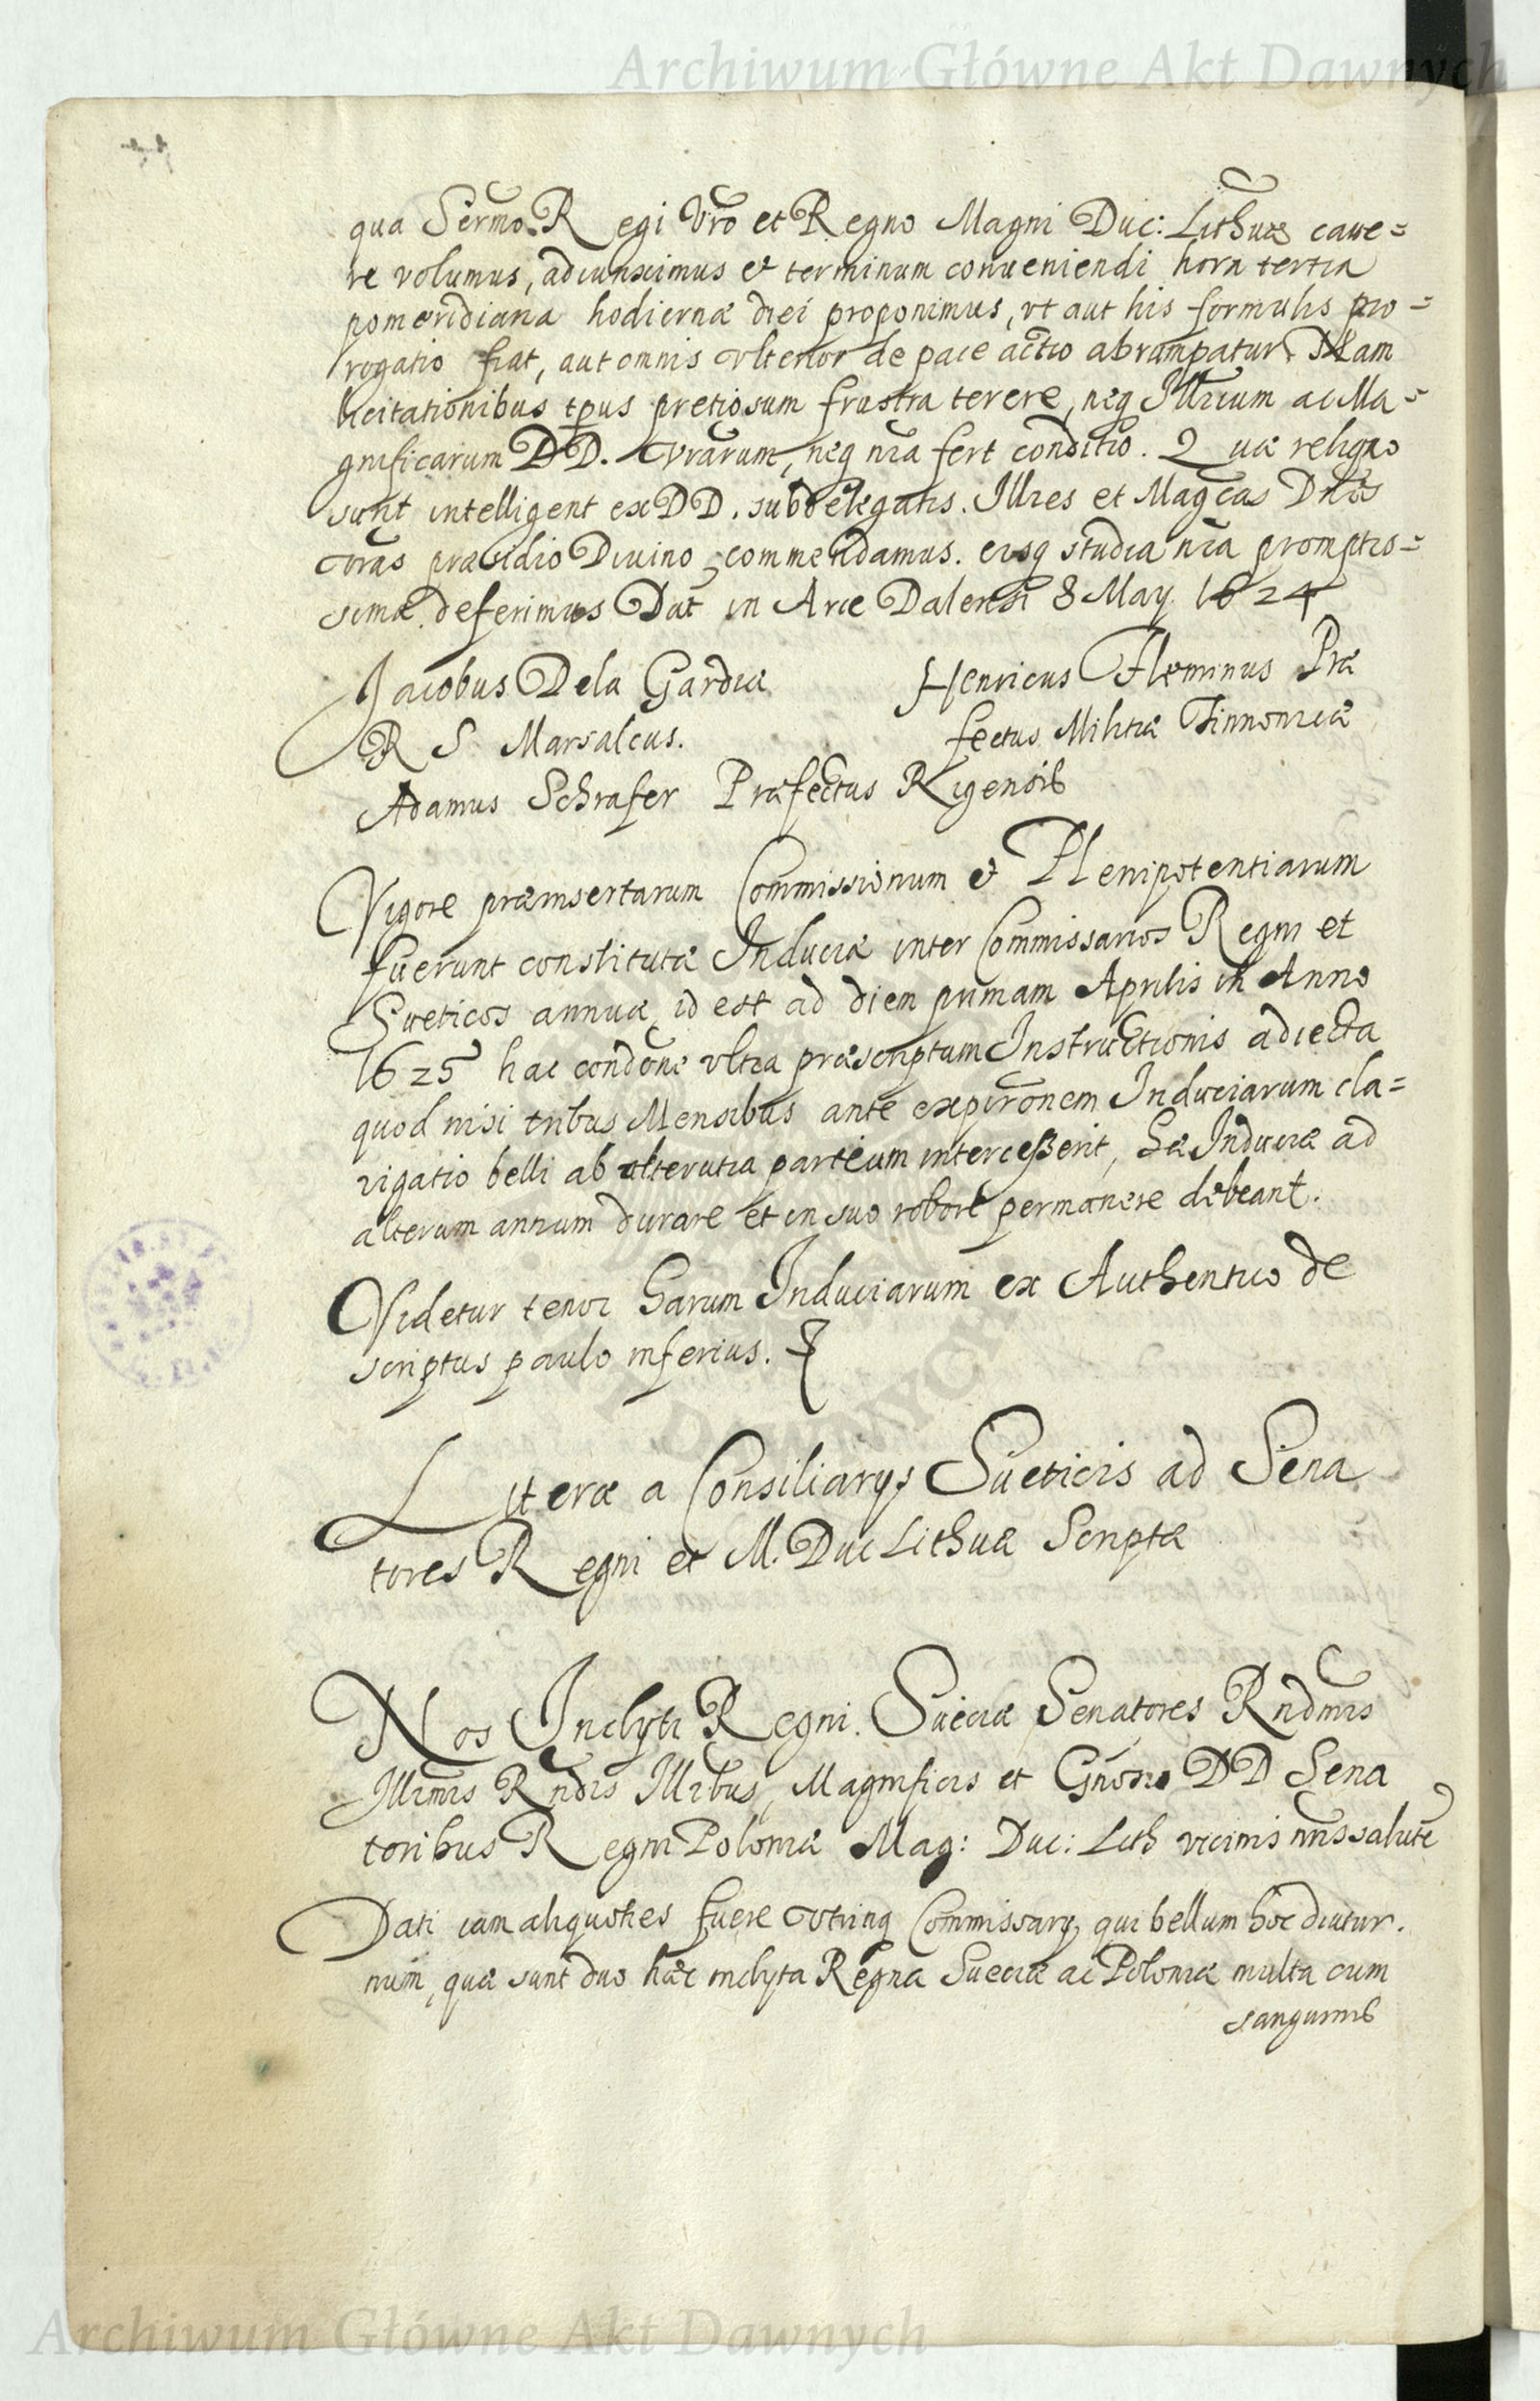 Archiwum Główne Akt Dawnych
qua Sermo. Regi Vro et Regno Magni Duc: Lithuae caue=
re volumus, adiunximus et terminum conueniendi hora tertia
pomeridiana hodiernæ diei proponimus, vt aut his formulis pro=
rogatio fiat, aut omnis vlterior de pace actio abrumpatur. Nam
licitationibus tpus pretiosum frustra terere, neq Illrium ac Ma=
gnificarum DD. Vrarum, neq nra fert conditio. Quæ reliqua
sunt intelligent ex DD. subdelegatis. Illres et Magcas Dnes
vras præsidio Diuino commendamus. eisq studia nra promptis=
sima deferimus Dat in Arce Dalensi 8 May 1624
Jacobus Dela Gardia Henricus Fleminus Præ
R S Marsalcus. fectus Militiæ Finnonicæ
Adamus Schrafer Præfectus Rigensis
Vigore præinsertarum Commissionum et Plenipotentiarum
fuerunt constitutæ Induciæ inter Commissarios Regni et
Sueticos annuæ, id est ad diem primam Aprilis in Anno
1625 hac condone vltra præscriptum Instructionis adiecta
quod nisi tribus Mensibus ante expironem Induciarum cla=
rigatio belli ab alterutra partium intercesserit, hæ Induciæ ad
alterum annum durare et in suo robore permanere debeant.
Videtur tenor harum Induciarum ex Authentico de
scriptus paulo inferius.
Literæ a Consiliarys Sueticis ad Sena
tores Regni et M. Duc Lithuæ Scriptæ
Nos Inclyti Regni. Sueciæ Senatores Rndmis
Illrmis Rndis Illribus, Magnificis et Gnosis DD Sena
toribus Regni Poloniæ Mag: Duc: Lith vicinis nris salute
Dati iam aliquoties fuere vtrinq Commissary, qui bellum hoc diutur.
num, quæ sunt duo hæc inclyta Regna Sueciæ ac Poloniæ multa cum
sanguinis
Archiwum Główne Akt Dawnych